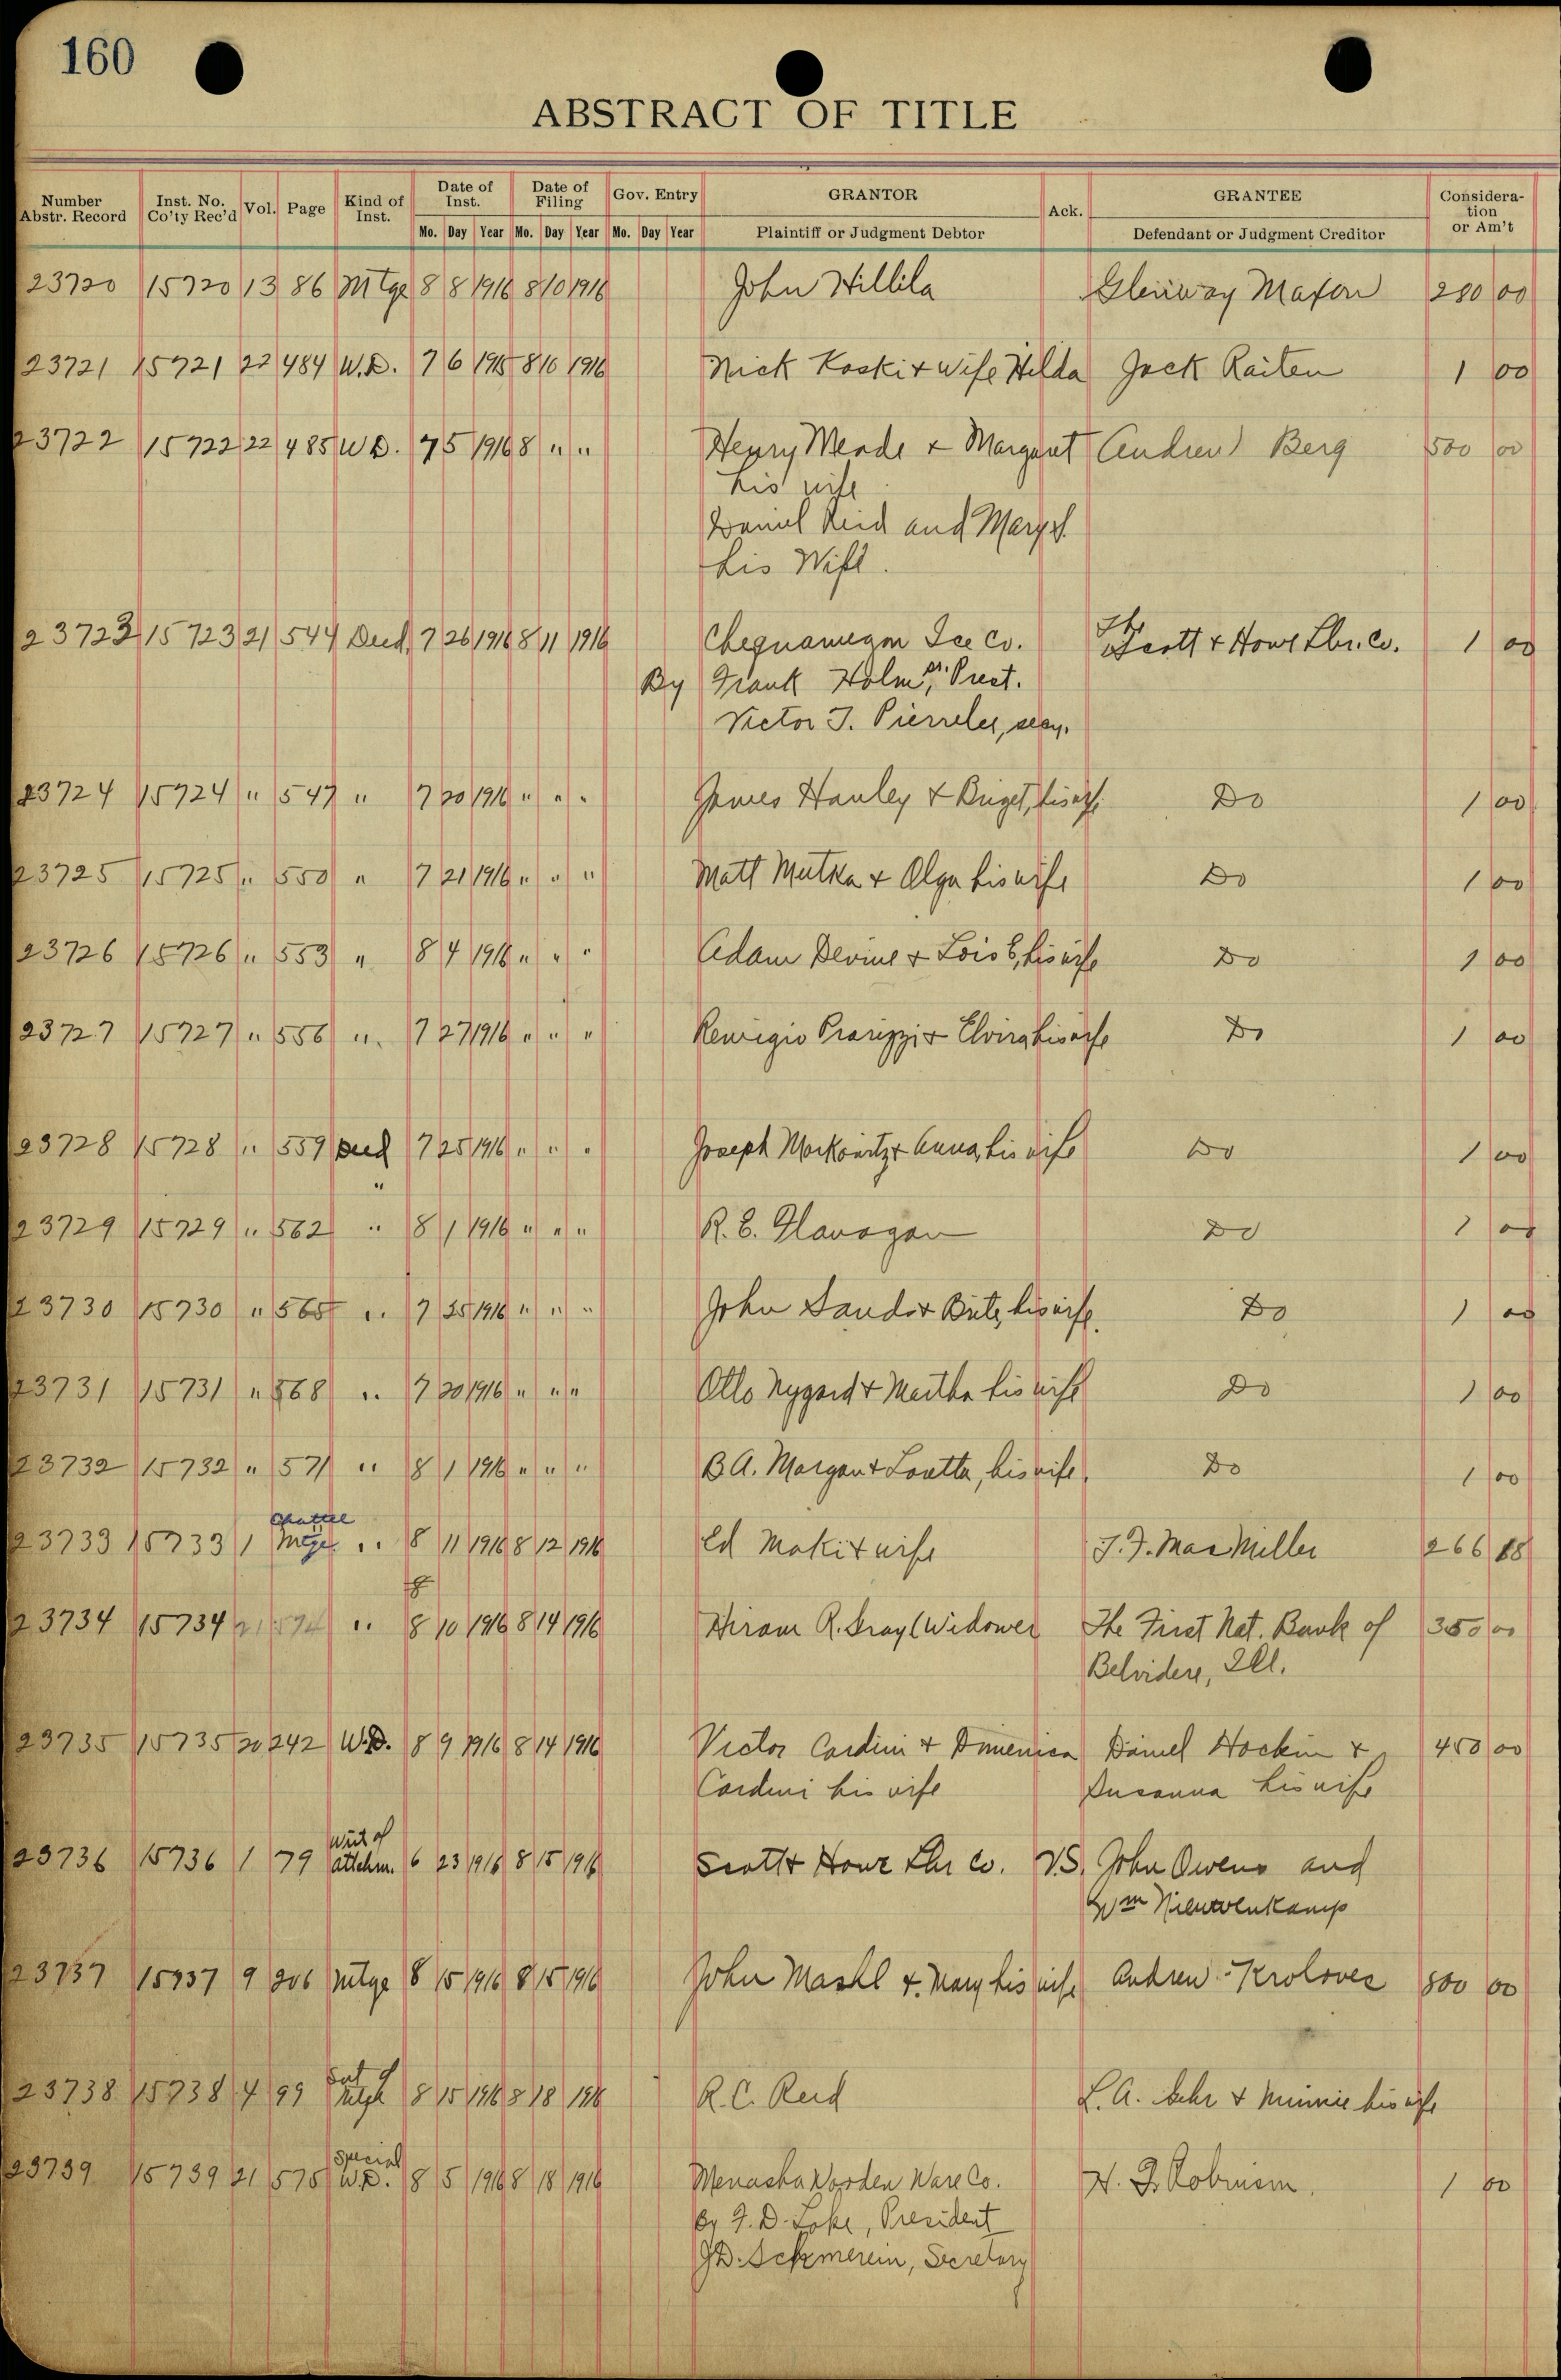 160
ABSTRACT OF TITLE
Number Abstr. Record Inst. No. Co'ty Rec'd Vol. Page Kind of Inst. Date of Inst. Date of Filing Gov. Entry GRANTOR Ack. GRANTEE Consideration or Am't
Mo. Day Year Mo. Day Year Mo. Day Year Plaintiff or Judgment Debtor Defendant or Judgment Creditor
23720 15720 13 86 Mtge 8 8 1916 8 10 1916 John Hillila Glenway Maxon 280 00
23721 15721 22 484 W.D. 7 6 1915 8 10 1916 Nick Koski & wife Hilda Jack Raiten 1 00
23722 15722 22 485 W D. 7 5 1916 8 " " Henry Meade & Margaret Andrew Berg 500 00
his wife
Daniel Reid and Mary
his Wife.
23723 15723 21 544 Deed 7 26 1916 8 11 1916 Chequamegon Ice Co. The Scott & Howe Lbr. Co. 1 00
By Frank Holm, Prest.
Victor J. secy.
23724 15724 " 547 " 7 20 1916 " " " James Hanley & Briget, his wife Do 1 00
23725 15725 " 550 " 7 21 1916 " " " Matt Mutka & Olga his wife Do 1 00
23726 15726 " 553 " 8 4 1916 " " " Adam Devine & Lois E, his wife Do 1 00
23727 15727 " 556 " 7 27 1916 " " " Remigio & Elvira his wife Do 1 00
23728 15728 " 559 Deed 7 25 1916 " " " Joseph Morkowitz & Anna, his wife Do 1 00
"
23729 15729 " 562 " 8 1 1916 " " " R. E. Flanagan Do 1 00
23730 15730 " 565 " 7 25 1916 " " " John & his wife. Do 1 00
23731 15731 " 568 " 7 20 1916 " " " Otto Nygard & Martha his wife Do 1 00
23732 15732 " 571 " 8 1 1916 " " " B A. Morgan & Loretta, his wife. Do 1 00
Chattel
23733 15733 1 Mtge " 8 11 1916 8 12 1916 Ed Maki & wife J. F. Mac Miller 266 88
23734 15734 21 574 " 8 10 1916 8 14 1916 Hiram R. Gray (Widower The First Nat. Bank of 350 00
Belvidere, Ill.
23735 15735 20 242 W.D. 8 9 1916 8 14 1916 Victor Cardini & Dimenica Daniel Hockin & 450 00
Cardini his wife Susanna his wife
Writ of
23736 15736 1 79 attchm. 6 23 1916 8 15 1916 Scott & Howe Lbr Co. V.S. John Owens and
Wm Nieuwenkamp
23737 15737 9 206 Mtge 8 15 1916 8 15 1916 John Mashl & Mary his wife Andrew Krolovec 800 00
Sat of
23738 15738 4 99 Mtge 8 15 1916 8 18 1916 R. C. Reid L. A. & Minnie his wife
Special
23739 15739 21 575 W.D. 8 5 1916 8 18 1916 Menasha Wooden Ware Co. H. F. Robinson. 1 00
By F. D. Lake, President
Secretary